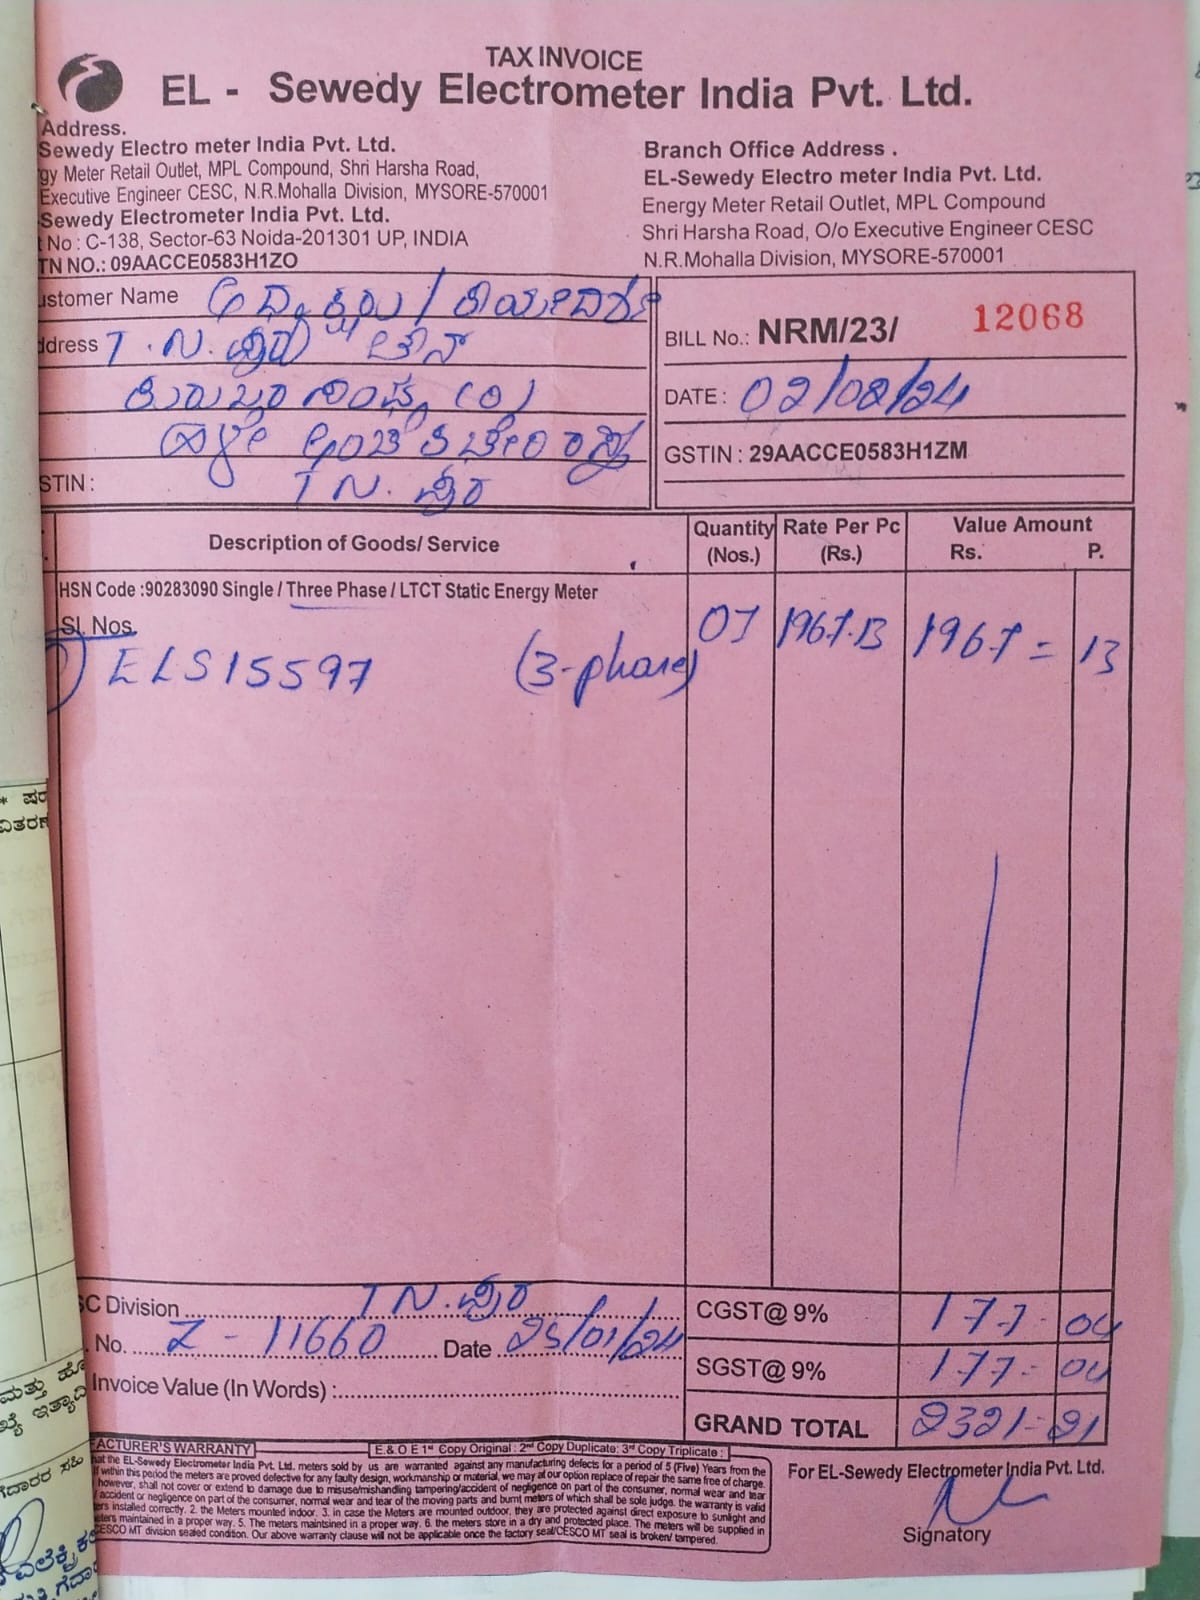 TAX INVOICE
EL - Sewedy Electrometer India Pvt. Ltd.
Address.
Sewedy Electro meter India Pvt. Ltd.
gy Meter Retail Outlet, MPL Compound, Shri Harsha Road,
Executive Engineer CESC, N.R.Mohalla Division, MYSORE-570001
Sewedy Electrometer India Pvt. Ltd.
t No : C-138, Sector-63 Noida-201301 UP, INDIA
TN NO.: 09AACCE0583H1ZO
Branch Office Address .
EL-Sewedy Electro meter India Pvt. Ltd.
Energy Meter Retail Outlet, MPL Compound
Shri Harsha Road, O/o Executive Engineer CESC
N.R.Mohalla Division, MYSORE-570001
ustomer Name ಅಧ್ಯಕ್ಷರು / ಕಾರ್ಯದರ್ಶಿ
ddress T.N.ಪುರ ಟೌನ್
(ಿ)
ಹಳೇ ಅಂಚೆ ಕಚೇರಿ ರಸ್ತೆ
STIN : T N.ಪುರ
BILL No.: NRM/23/ 12068
DATE : 02/02/24
GSTIN : 29AACCE0583H1ZM
Description of Goods/ Service
Quantity (Nos.)
Rate Per Pc (Rs.)
Value Amount
Rs. P.
HSN Code :90283090 Single / Three Phase / LTCT Static Energy Meter
Sl. Nos.
1) ELS15597 (3-phase) 01 1967.13 1967 = 13
SC Division TN.ಪುರ
. No. Z - 11660 Date 25/01/24
Invoice Value (In Words) :
CGST@ 9% 177- 04
SGST@ 9% 177- 04
GRAND TOTAL 2321-21
FACTURER'S WARRANTY E.& O E 1st Copy Original : 2nd Copy Duplicate: 3rd Copy Triplicate :
hat the EL-Sewedy Electrometer India Pvt. Ltd. meters sold by us are warranted against any manufacturing defects for a period of 5 (Five) Years from the
If within this period the meters are proved defective for any faulty design, workmanship or material, we may at our option replace of repair the same free of charge.
however, shall not cover or extend to damage due to misuse/mishandling tampering/accident of negligence on part of the consumer, normal wear and tear
/ accident or negligence on part of the consumer, normal wear and tear of the moving parts and burnt meters of which shall be sole judge. the warranty is valid
ters installed correctly. 2. the Meters mounted indoor. 3. in case the Meters are mounted outdoor, they are protected against direct exposure to sunlight and
eters maintained in a proper way. 5. The meters maintsined in a proper way. 6. the meters store in a dry and protected place. The meters will be supplied in
CESCO MT division sealed condition. Our above warranty clause will not be applicable once the factory seal/CESCO MT seal is broken/ tampered.
For EL-Sewedy Electrometer India Pvt. Ltd.
Signatory
* ಪರ
ವಿತರಣ
ಮತ್ತು ಹೊ
ಇತ್ಯಾದಿ